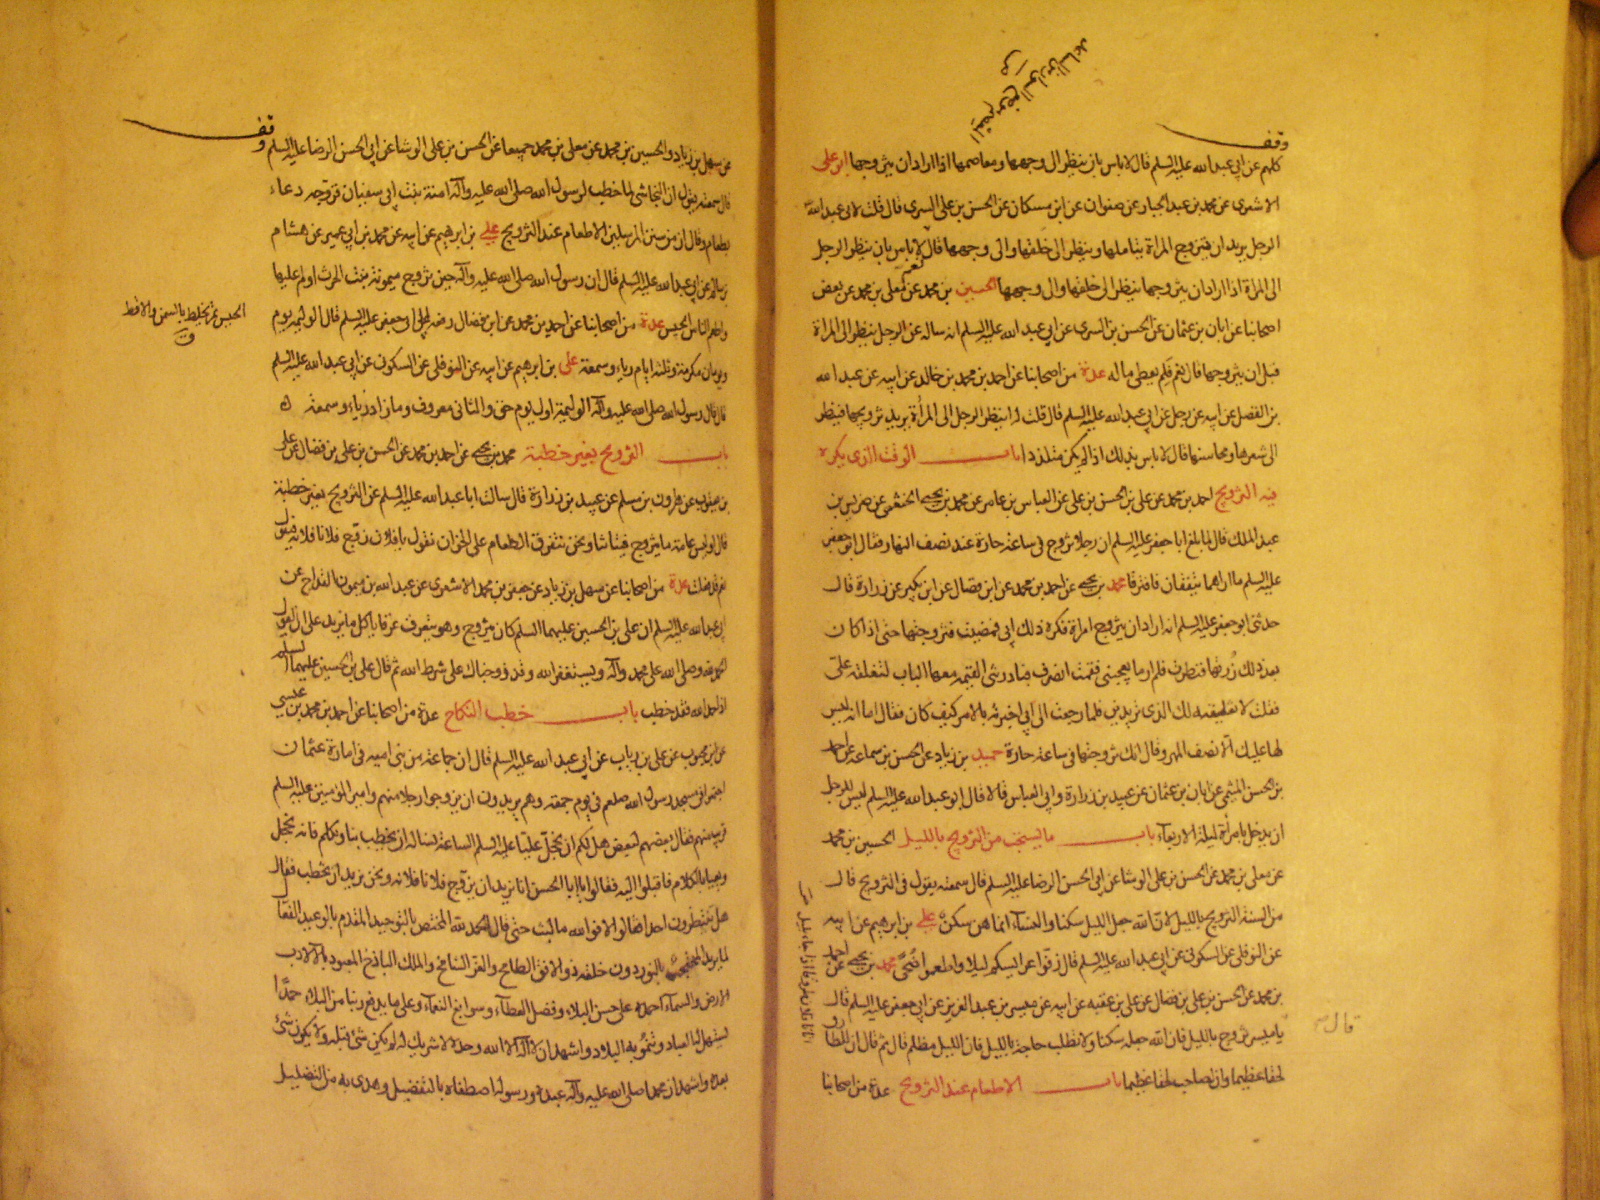 وقف
كلهم عن ابي عبد الله عليه السلم قال لا باس بان ينظر الى وجهها ومعاصمها اذا اراد ان يتزوجها ابو على
الاشعرى عن محمد بن عبد الجبار عن صفوان عن ابن مسكان عن الحسن بن على السرى قال قلت لابى عبد الله
الرجل يريد ان يتزوج المراة يتاملها وينظر الى خلفها والى وجهها قال لا باس بان ينظر الرجل
الى المراة اذا اراد ان يتزوجها ينظر الى خلفها والى وجهها الحسين بن محمد عن معلى بن محمد عن بعض
اصحابنا عن ابان بن عثمان عن الحسن بن السرى عن ابي عبد الله عليه السلم انه ساله عن الرجل ينظر الى المراة
قبل ان يتزوجها قال نعم فلم يعطى ماله عدة من اصحابنا عن احمد بن محمد بن خالد عن ابيه عن عبد الله
بن الفضل عن ابيه عن رجل عن ابي عبد الله عليه السلم قال قلت له اينظر الرجل الى المرأة يريد تزويجها فينظر
الى شعرها ومحاسنها قال لا باس بذلك اذا لم يكن متلذذا باب الوقت الذى يكره
فيه التزويج احمد بن محمد عن على بن الحسن بن على عن العباس بن عامر عن محمد بن يحيى الخثعمى عن ضريس بن
عبد الملك قال لما بلغ ابا جعفر عليه السلم ان رجلا تزوج فى ساعة حارة عند نصف النهار فقال ابو جعفر
عليه السلم ما اراهما يتفقان فافترقا محمد بن يحيى عن احمد بن محمد عن ابن فضال عن ابن بكير عن زرارة قال
حدثنى ابو جعفر عليه السلم انه اراد ان يتزوج امراة فكره ذلك ابى فمضيت فتزوجتها حتى اذا كان
بعد ذلك زرتها فنظرت فلم ار ما يعجبنى فقمت انصرف فبادرتنى القيمة معها الباب لتغلقه علىّ
فقلت لا تغلقيه لك الذى تريدين فلما رجعت الى ابى اخبرته بالامر كيف كان فقال اما انه ليس
لها عليك الا نصف المهر وقال انك تزوجتها فى ساعة حارة حميد بن زياد عن الحسن بن سماعة عن احمد
بن الحسن الميثمى عن ابان بن عثمان عن عبيد بن زرارة وابى العباس قالا قال ابو عبد الله عليه السلم ليس للرجل
ان يدخل بامرأة ليلة الاربعاء باب ما يستحب من التزويج بالليل الحسين بن محمد
عن معلى بن محمد عن الحسن بن على الوشا عن ابى الحسن الرضا عليه السلم قال سمعته يقول فى التزويج قال
من السنة التزويج بالليل لان الله جعل الليل سكنا والنساء انما هن سكن على بن ابرهيم عن ابيه
عن النوفلى عن السكونى عن ابى عبد الله عليه السلم قال زفوا عرايسكم ليلا واطعموا ضحىً محمد بن يحيى عن احمد
بن محمد عن الحسن بن على بن فضال عن على بن عقبه عن ابيه عن ميسر بن عبد العزيز عن ابى جعفر عليه السلم قال
يا ميسر تزوج بالليل فان الله جعله سكنا ولا تطلب حاجة بالليل فان الليل مظلم قال ثم قال ان للطارق
لحقا عظيما وان للصاحب لحقا عظيما باب الاطعام عند التزويج عدة من اصحابنا
قال
وقف
عن سهل بن زياد والحسين بن محمد عن معلى بن محمد جميعا عن الحسن بن على الوشا عن ابى الحسن الرضا عليه السلم
قال سمعته يقول ان النجاشى لما خطب لرسول الله صلى الله عليه واله امنة بنت ابى سفيان فزوجه دعاء
بطعام وقال ان من سنن المرسلين الاطعام عند التزويج على بن ابرهيم عن ابيه عن محمد بن ابى عمير عن هشام
بن سالم عن ابى عبد الله عليه السلم قال ان رسول الله صلى الله عليه وآله حين تزوج ميمونة بنت الحرث اولم عليها
واطعم الناس الحيس عدة من اصحابنا عن احمد بن محمد عن ابن فضال رفعه الى ابى جعفر عليه السلم قال الوليمة يوم
ويومان مكرمة وثلثة ايام رياء وسمعة على بن ابرهيم عن ابيه عن النوفلى عن السكونى عن ابى عبد الله عليه السلم
قال قال رسول الله صلى الله عليه وآله الوليمة اول يوم حق والثانى معروف وما زاد رياء وسمعة
باب التزويج بغير خطبة محمد بن يحيى عن احمد بن محمد عن الحسن بن على بن فضال عن على
بن يعقوب عن هرون بن مسلم عن عبيد بن زرارة قال سالت ابا عبد الله عليه السلم عن التزويج بغير خطبة
قال اوليس عامة ما يتزوج فتياننا ونحن نتعرق الطعام على الخوان نقول يا فلان زوج فلانا فلانه فيقول
نعم قد فعلت عدة من اصحابنا عن سهل بن زياد عن جعفر بن محمد الاشعرى عن عبد الله بن ميمون القداح عن
ابى عبد الله عليه السلم ان على بن الحسين عليهما السلم كان يتزوج وهو يتعرق عرقا ياكل ما يزيد على ان يقول
الحمد لله وصلى الله على محمد وآله ويستغفر الله وقد زوجناك على شرط الله ثم قال على بن الحسين عليهما السلم
اذا حمد الله فقد خطب باب خطب النكاح عدة من اصحابنا عن احمد بن محمد بن عيسى
عن ابن محبوب عن على بن رياب عن ابى عبد الله عليه السلم قال ان جماعة من بنى اميه فى امارة عثمان
اجتمعوا فى مسجد رسول الله صلعم فى يوم جمعة وهم يريدون ان يزوجوا رجلا منهم وامير المؤمنين عليه السلم
قريب منهم فقال بعضهم لبعض هل لكم ان نخجل عليا عليه السلم الساعة نساله ان يخطب بنا ونتكلم فانه يخجل
ويعيا بالكلام فاقبلوا اليه فقالوا يا ابا الحسن انا نريد ان نزوج فلانا فلانه ونحن نريد ان تخطب فقال
هل تنتظرون احدا فقالوا لا فو الله ما لبث حتى قال الحمد لله المختص بالتوحيد المقدم بالوعيد الفعال
لما يريد المحتجب بالنور دون خلقه ذو الافق الطامح والعز الشامخ والملك الباذخ المعبود بالآلاء رب
الارض والسماء احمده على حسن البلاء وفضل العطاء وسوابغ النعماء وعلى ما يدفع ربنا من البلاء حمدًا
يستهل له العباد وتنمو به البلاد واشهد ان لا اله الا الله وحده لا شريك له لم يكن شئ قبله ولا يكون شئ
بعده واشهد ان محمدا صلى الله عليه وآله عبده ورسوله اصطفاه بالتفضيل وهدى به من التضليل
الحيس تمر يخلط بالسمن والاقط